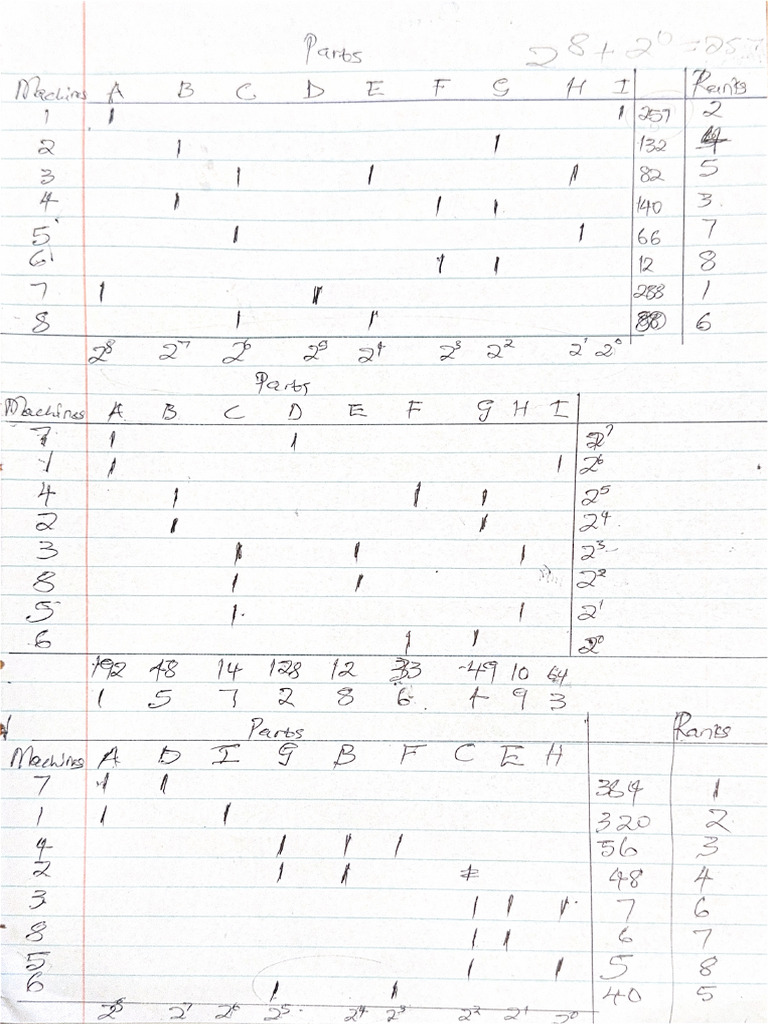 Parts 2^8 + 2^0 = 257
Machines A B C D E F G H I Ranks
1 1 1 257 2
2 1 1 132
3 1 1 1 82 5
4 1 1 1 140 3
5 1 1 66 7
6 1 1 12 8
7 1 1 288 1
8 1 1 6
2^8 2^7 2^6 2^5 2^4 2^3 2^2 2^1 2^0
Parts
Machines A B C D E F G H I
7 1 1 2^7
1 1 1 2^6
4 1 1 1 2^5
2 1 1 2^4
3 1 1 1 2^3
8 1 1 2^2
5 1 1 2^1
6 1 1 2^0
192 48 14 128 12 33 49 10 64
1 5 7 2 8 6 4 9 3
Parts Ranks
Machines A D I G B F C E H
7 1 1 384 1
1 1 1 320 2
4 1 1 1 56 3
2 1 1 48 4
3 1 1 1 7 6
8 1 1 6 7
5 1 1 5 8
6 1 1 40 5
2^8 2^7 2^6 2^5 2^4 2^3 2^2 2^1 2^0